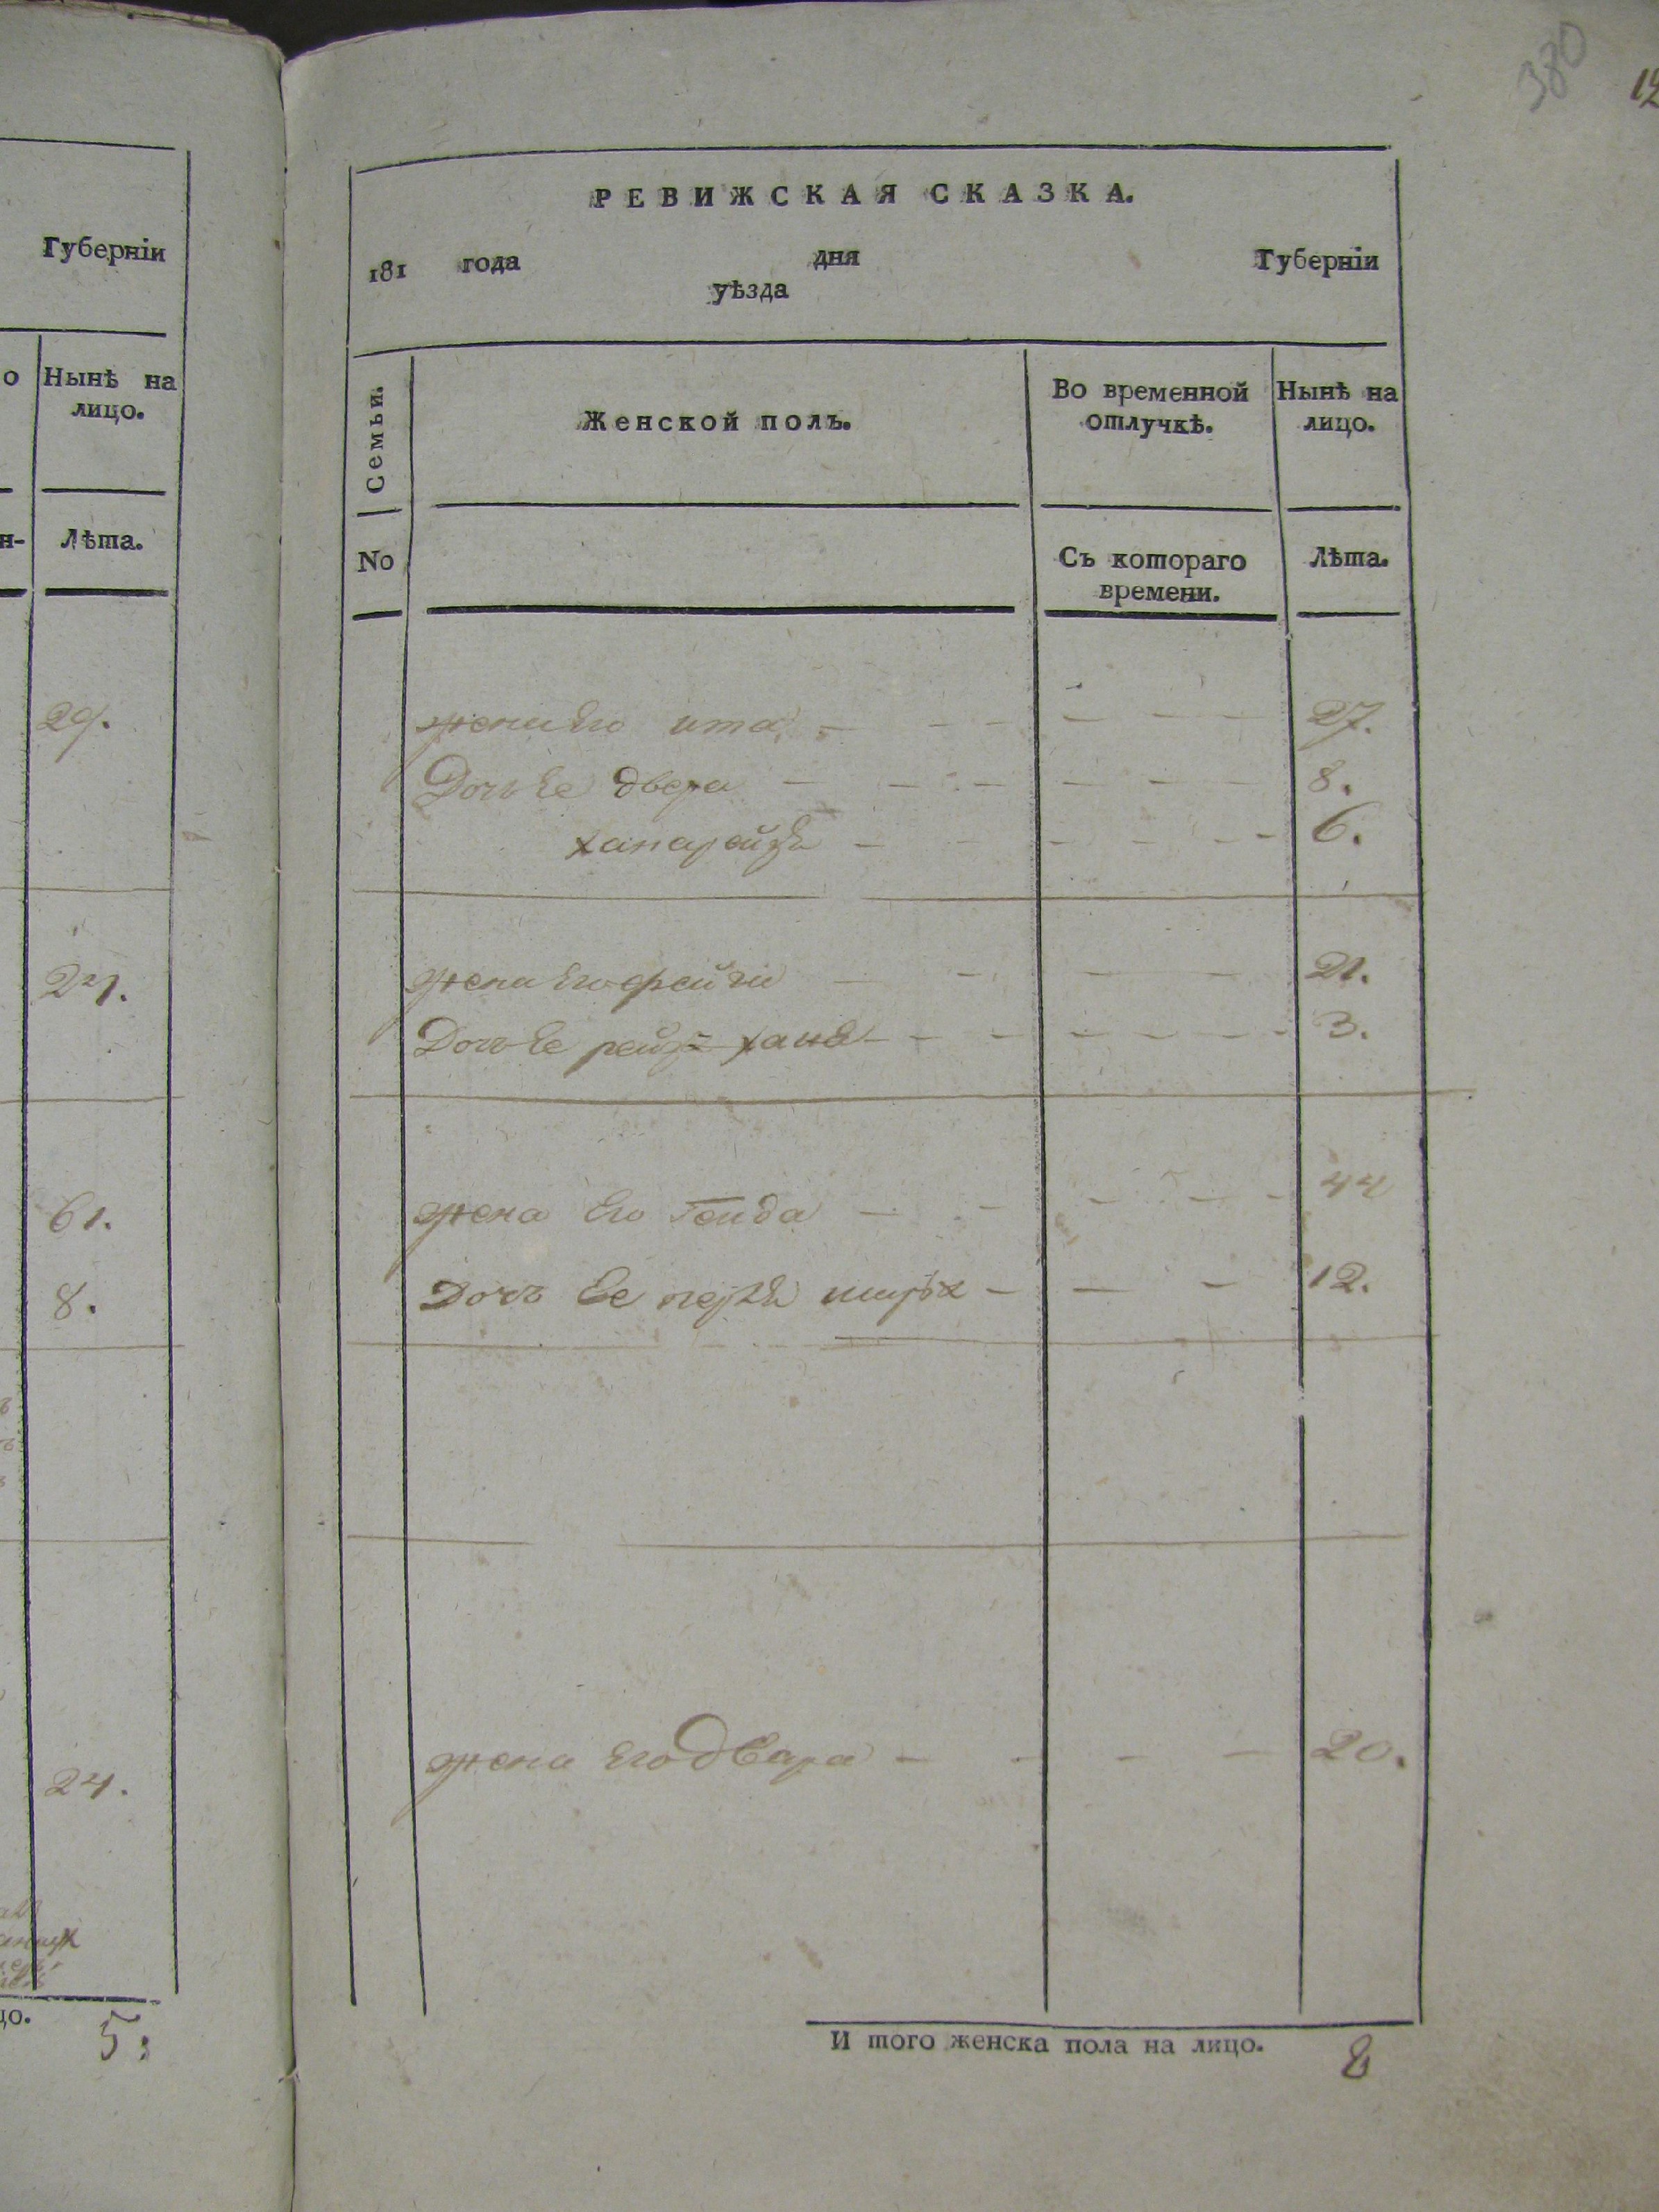 380
12
Губерніи
о
Нынѣ на
лицо.
н-
Лѣта.
29.
24.
61.
8.
24.
цо.
5:
РЕВИЖСКАЯ СКАЗКА.
181 года дня Губерніи
уѣзда
Семьи.
Женской полъ.
Во временной
отлучкѣ.
Нынѣ на
лицо.
No
Съ котораго
времени.
Лѣта.
жена Его ита 27.
Дочь Ее двера 8.
ханарейза 6.
жена Его фейга 21.
Дочь Ее рейза хана 3.
жена Его Генда 44
Дочь Ее 12.
жена Его двара 20.
И того женска пола на лицо. 8